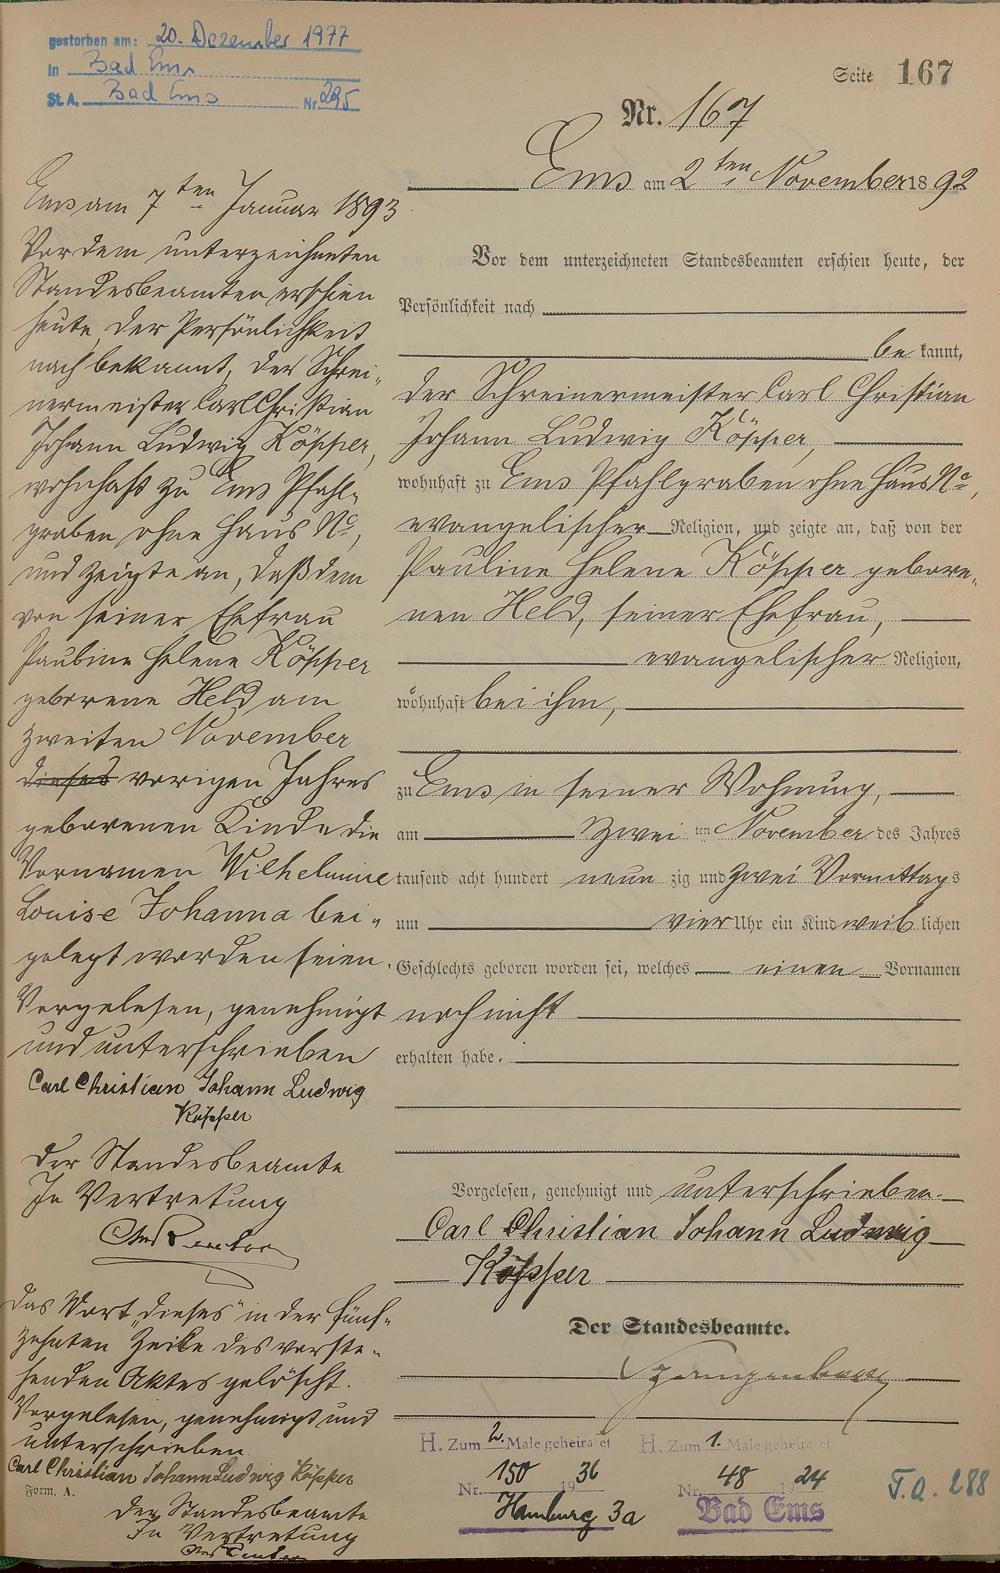 gestorben am: 20. Dezember 1977
in Bad Ems
St. A. Bad Ems Nr. 295
Seite 167
Nr. 167
Ems am 2ten November 1892
Vor dem unterzeichneten Standesbeamten erschien heute, der
Persönlichkeit nach
bekannt,
der Schreinermeister Carl Christian
Johann Ludwig Köpper,
wohnhaft zu Ems Pfahlgraben ohne Haus No,
evangelischer Religion, und zeigte an, daß von der
Pauline Helene Köpper gebore-
nen Held, seiner Ehefrau,
evangelischer Religion,
wohnhaft bei ihm,
zu Ems in seiner Wohnung,
am zweiten November des Jahres
tausend acht hundert neunzig und zwei Vormittags
um vier Uhr ein Kind weiblichen
Geschlechts geboren worden sei, welches einen Vornamen
noch nicht
erhalten habe.
Vorgelesen, genehmigt und unterschrieben.
Carl Christian Johann Ludwig
Köpper
Der Standesbeamte.
Ems am 7ten Januar 1893
Vor dem unterzeichneten
Standesbeamten erschien
heute, der Persönlichkeit
nach bekannt, der Schrei-
nermeister Carl Christian
Johann Ludwig Köpper,
wohnhaft zu Ems Pfahl-
graben ohne Haus No,
und zeigte an, daß dem
von seiner Ehefrau
Pauline Helene Köpper
geborene Held am
zweiten November
dieses vorigen Jahres
geborenen Kinde die
Vornamen Wilhelmine
Louise Johanna bei-
gelegt worden seien.
Vorgelesen, genehmigt
und unterschrieben
Carl Christian Johann Ludwig
Köpper
Der Standesbeamte
In Vertretung
Das Wort "dieses" in der fünf-
zehnten Zeile des vorste-
henden Aktes gelöscht.
Vorgelesen, genehmigt und
unterschrieben
Carl Christian Johann Ludwig Köpper
Form. A.
Der Standesbeamte
In Vertretung
H. Zum 2. Male geheiratet
Nr. 150 1936
Hamburg 3a
H. Zum 1. Male geheiratet
Nr. 48 1924
Bad Ems
T.A. 288